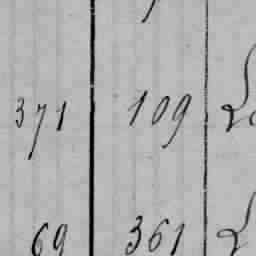 371 109
69 361